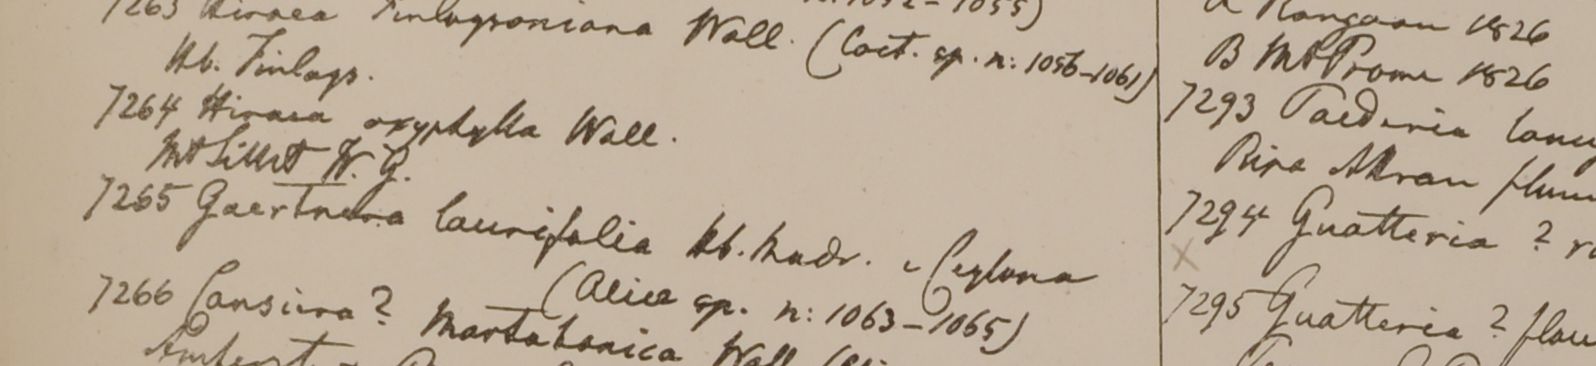 7263 Hiraea Finlaysoniana Wall. (Caet. sp. n: 1056-1061)
Hb. Finlays.
7264 Hiraea oxyphylla Wall.
Mt Sillet W. G.
7265 Gaertnera laurifolia Hb. Madr. e Ceylona
(Aliae sp. n: 1063-1065)
7266 Cansiera? Martabanica Wall
Amherst
Rangoon 1826
B Mt Prome 1826
7293 Paederia
Ripa Attran
7294 Guatteria ?
X
7295 Guatteria ?